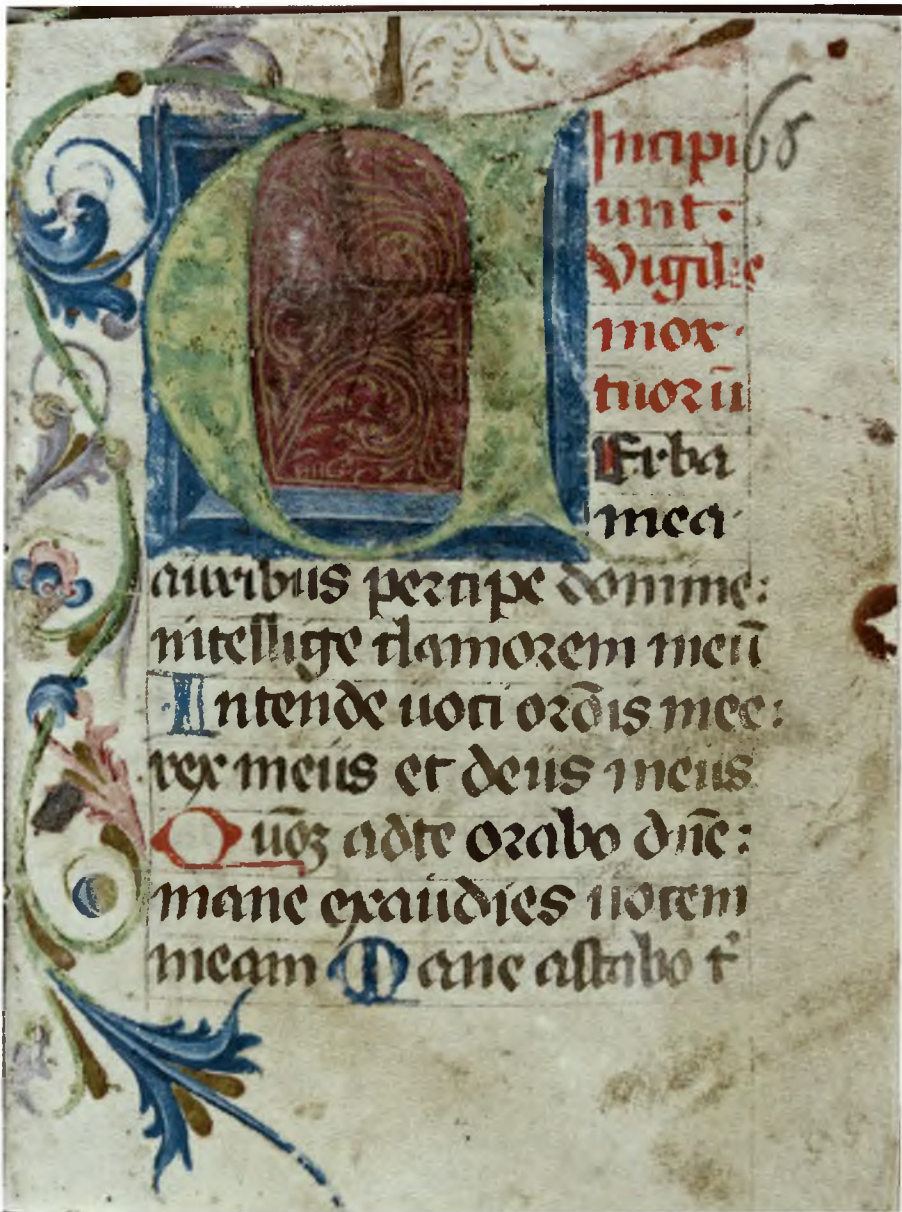 Incipi
unt.
Vigilie
mor.
tuorū
VErba
mea
auribus percipe domine:
intellige clamorem meū
Intende uoci orōis mee:
rex meus et deus meus
Quōꝫ adte orabo dn̄e:
mane exaudies uocem
meam Mane astabo t᷑
68